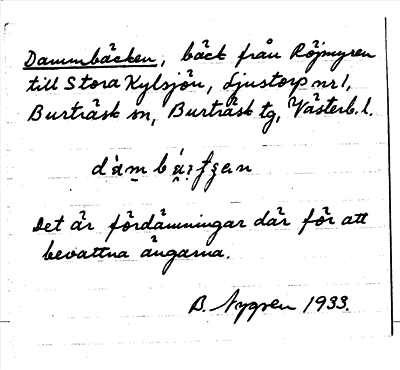 Dammbäcken, bäck från Röjmyren
till Stora Kylsjön, Ljustorp nr 1,
Burträsk sn, Burträsk tg, Västerb. l.
Det är fördämningar där för att
bevattna ängarna.
B. Nygren 1933.